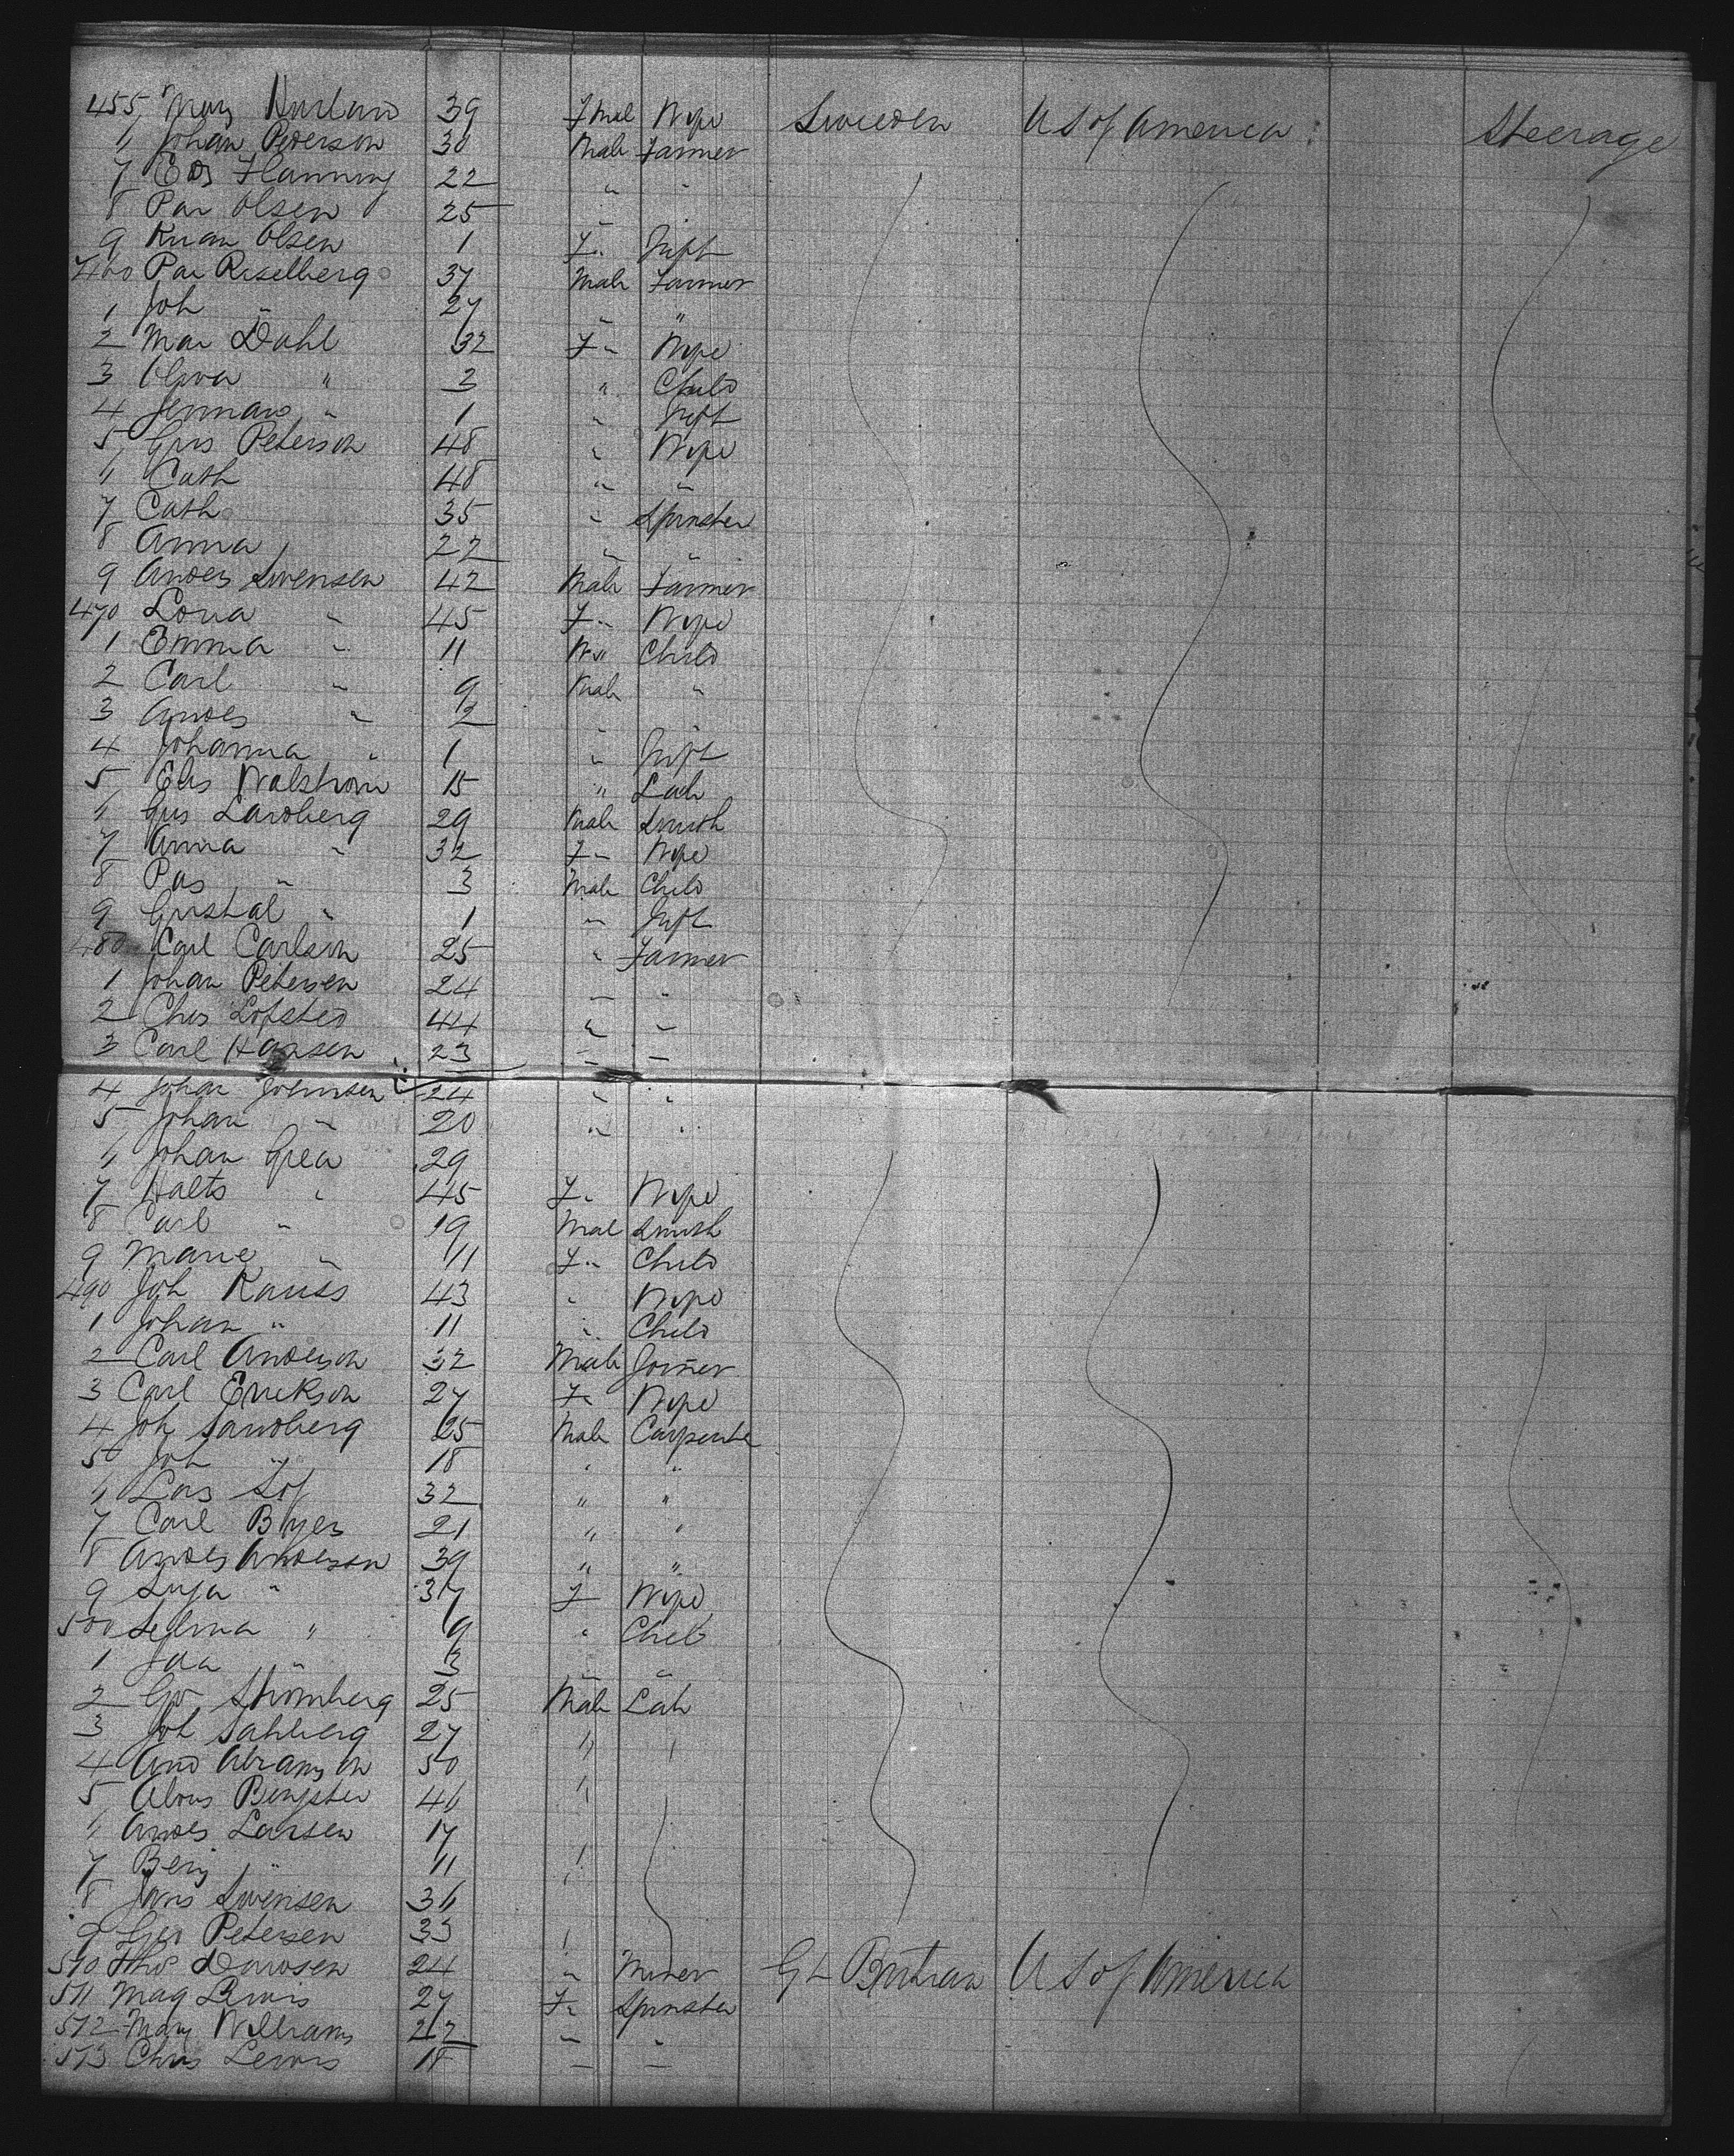 455 Mary Hurland 39 Fmal Wife Sweden U S of America Steerage
6 Johan Pederson 30 Male Farmer
7 22 " "
8 Par Olsen 25 "
9 Olsen 1 F " Inft
460 Par Reselberg 37 Male Farmer
1 Joh " 27 " "
2 Mar Dahl 32 F " Wife
3 " 3 " Child
4 " 1 " Inft
5 Gus Peterson 48 " Wife
6 Cath 48 " "
7 Cath 35 " Spinster
8 Anna 22 " "
9 Anders Swensen 42 Male Farmer
470 " 45 F " Wife
1 Emma " 11 " Child
2 Carl " 9 Male "
3 Anders " 2 "
4 Johanna " 1 " Inft
5 Elis Walstrom 15 " Lab
6 Gus Landberg 29 Male Smith
7 Anna " 32 F " Wife
8 " 3 Male Child
9 Gustal " 1 " Inft
480 Carl Carlson 25 " Farmer
1 Johan Petersen 24 " "
2 Chs Lofsted 44 " "
3 Carl Hansen 23 " "
4 Johan Johnsen 24 " "
5 Johan " 20 " "
6 Johan 29
7 " 45 F " Wife
8 Carl " 19 Mal Smith
9 Marie " 11 F " Child
490 Joh Kauss 43 " Wife
1 Johan " 11 " Child
2 Carl Anderson 32 Male Joiner
3 Carl Erickson 27 F " Wife
4 Joh Sandberg 25 Male Carpenter
5 Joh " 18 " "
6 Lars 32 " "
7 Carl 21 " "
8 Anders Anderson 39 " "
9 " 37 F Wife
500 Selma " 9 " Child
1 Ida " 3 " "
2 Stromberg 25 Male Lab
3 Joh Sahlberg 27 " "
4 And Abramson 50
5 46 "
6 Anders Larsen 17
7 Benj " 11 "
8 Swensen 36 "
9 Petersen 33 "
510 Thos Dawsen 24 " Miner Gt Britian U S of America
511 Mag Lewis 27 F " Spinster
512 Mary Williams 22 " "
513 Chris Lewis 18 " "